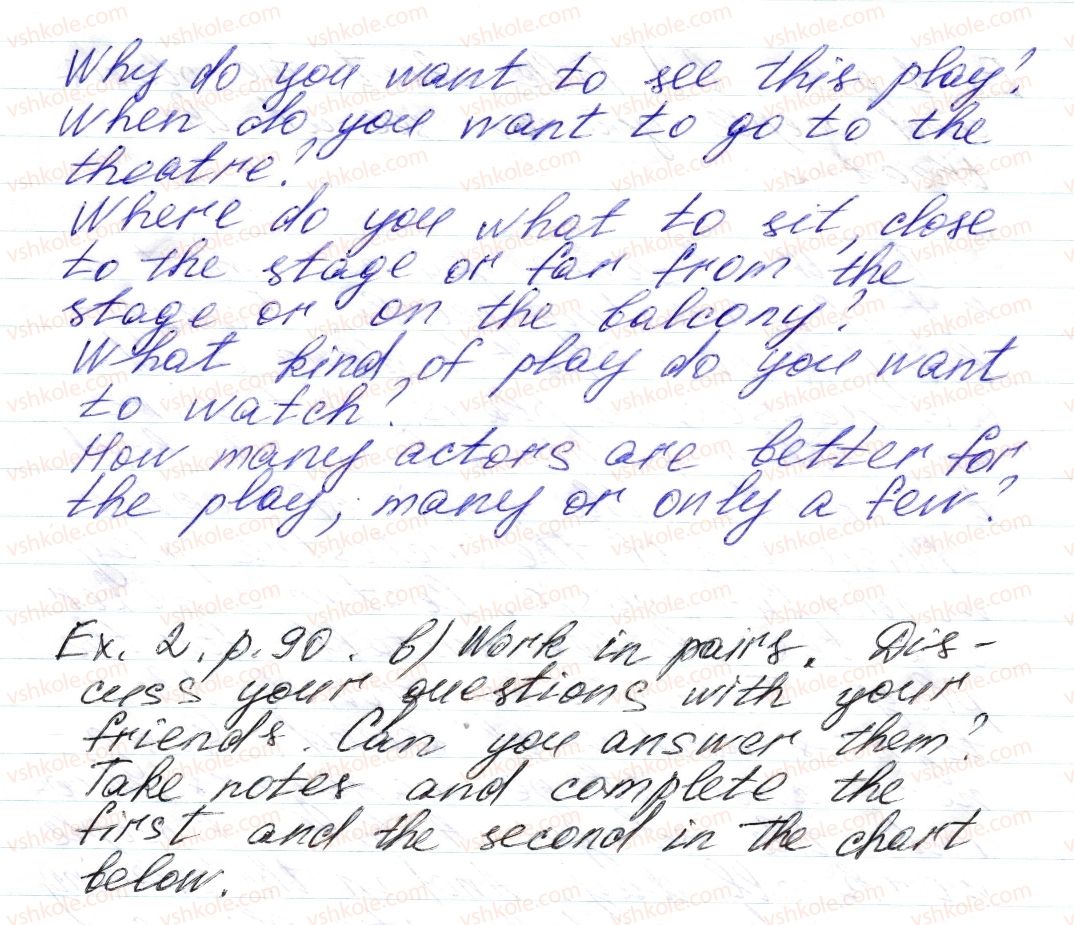 Why do you want to see this play?
When do you want to go to the
theatre?
Where do you what to sit, close
to the stage or far from the
stage or on the balcony?
What kind of play do you want
to watch?
How many actors are better for
the play, many or only a few?
Ex. 2, p. 90. b) Work in pairs. Dis-
cuss your questions with your
friends. Can you answer them?
Take notes and complete the
first and the second in the chart
below.
vshkole.com